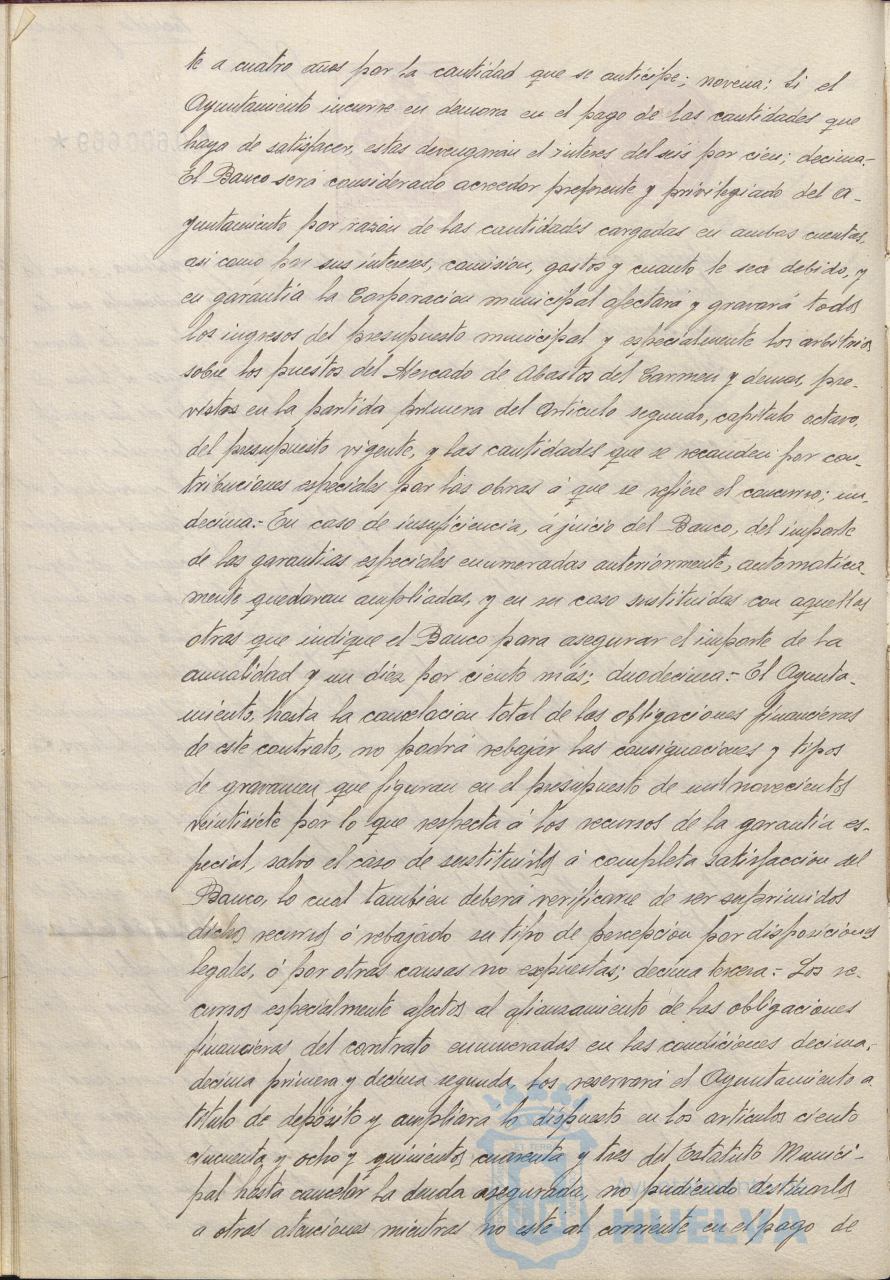 te a cuatro años por la cantidad que se anticipe; novena: Si el
Ayuntamiento incurre en demora en el pago de las cantidades que
haya de satisfacer, estas devengarán el interes del seis por cien; decima.-
El Banco será considerado acreedor preferente y privilegiado del A-
yuntamiento por razón de las cantidades cargadas en ambas cuentas,
asi como por sus intereses, comision, gastos y cuanto le sea debido, y
en garantia la Corporacion municipal afectará y gravará todos
los ingresos del presupuesto municipal y especialmente los arbitrios
sobre los puestos del Mercado de Abastos del Carmen y demas, pre-
vistos en la partida primera del articulo segundo, capitulo octavo,
del presupuesto vigente, y las cantidades que se recauden por con-
tribuciones especiales por las obras á que se refiere el concurso; un-
decima.- En caso de insuficiencia, á juicio del Banco, del importe
de las garantias especiales enumeradas anteriormente, automatica-
mente quedaran ampliadas, y en su caso sustituidas con aquellas
otras que indique el Banco para asegurar el importe de la
anualidad y un diez por ciento más; duodecima.- El Ayunta-
miento, hasta la cancelacion total de las obligaciones financieras
de este contrato, no podrá rebajar las consignaciones y tipos
de gravamen que figuran en el presupuesto de mil novecientos
veintisiete por lo que respecta á los recursos de la garantia es-
pecial, salvo el caso de sustituirlos á completa satisfacción del
Banco, lo cual tambien deberá verificarse de ser suprimidos
dichos recursos ó rebajado su tipo de percepción por disposiciones
legales, ó por otras causas no expuestas; decima tercera.- Los re-
cursos especialmente afectos al afianzamiento de las obligaciones
financieras del contrato enumeradas en las condiciones decima,
decima primera y decima segunda, los reservará el Ayuntamiento a
titulo de depósito y ampliara lo dispuesto en los articulos ciento
cincuenta y ocho y quinientos cuarenta y tres del Estatuto Munici-
pal hasta cancelar la deuda asegurada, no pudiendo destinarlos
a otras atenciones mientras no esté al corriente en el pago de
HUELVA